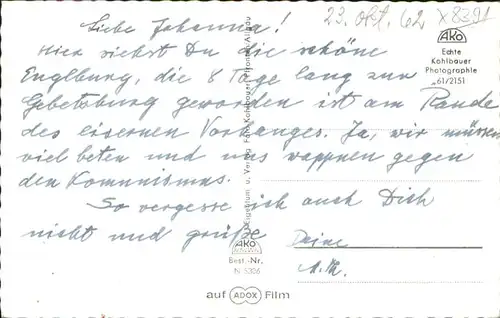 23. Okt. 62 x8391
Liebe Johanna!
Hier siehst Du die schöne
Englburg, die 8 Tage lang zur
Gebetsburg geworden ist am Rande
des eisernen Vorhanges. Ja, wir müssen
viel beten und uns wappnen gegen
den Kommunismus.
So vergesse ich auch Dich
nicht und grüße
Deine
A.Th.
AKO
Echte
Kohlbauer
Photographie
61/2151
Eigentum u. Verlag Foto Kohlbauer, Pfronten/Allgäu
AKO
Best.-Nr.
N 5306
auf ADOX Film